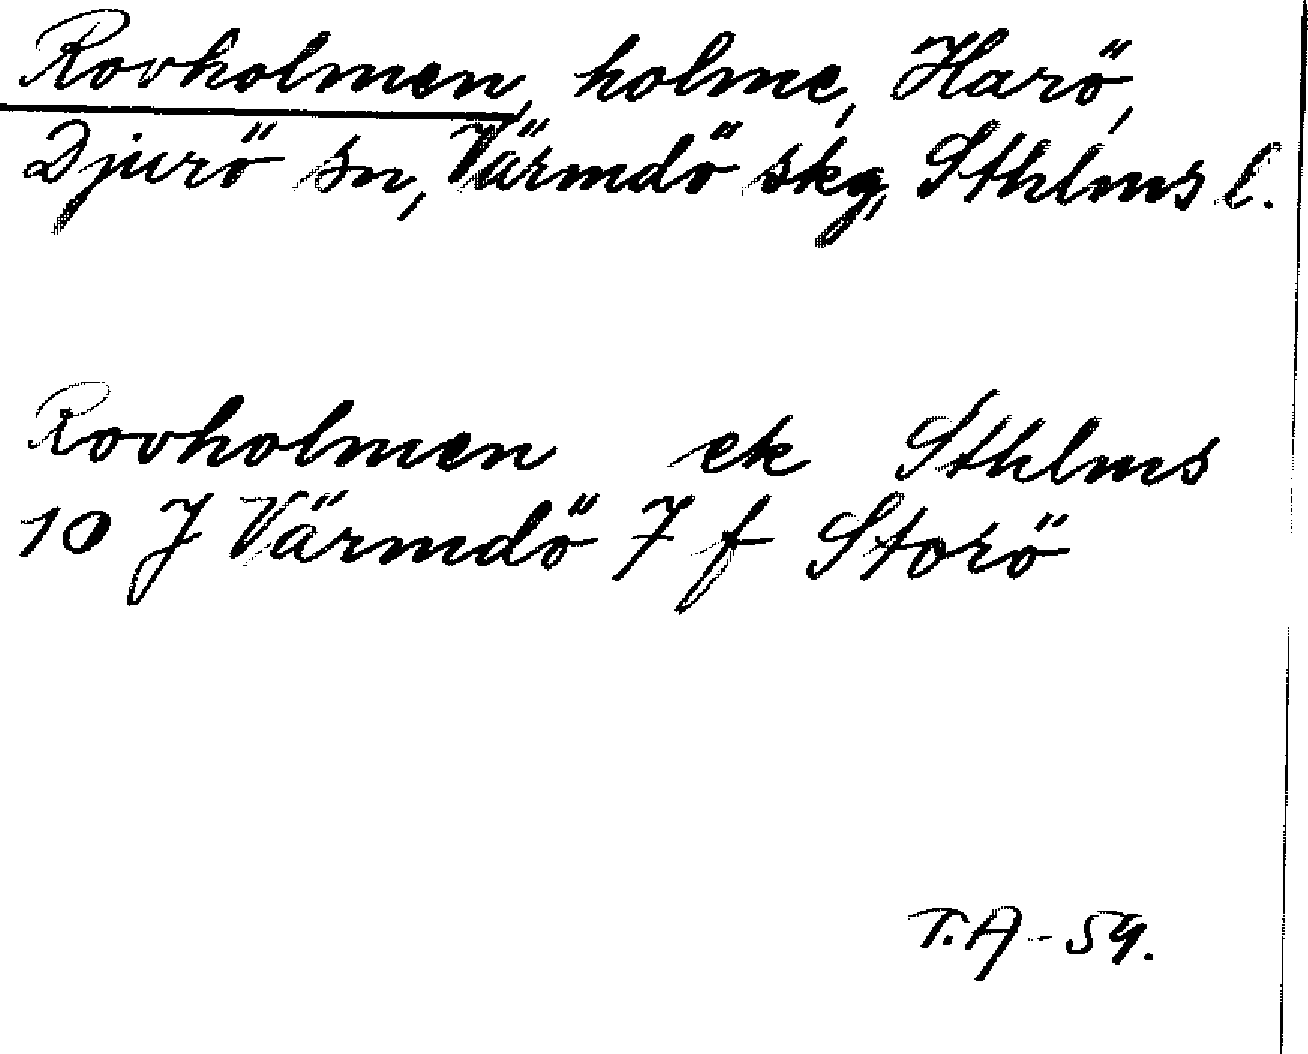 Rovholmen, holme, Harö,
Djurö sn, Värmdö skg, Sthlms l.
Rovholmen ek Sthlms
10 J Värmdö 7 f Storö
T.A - 59.